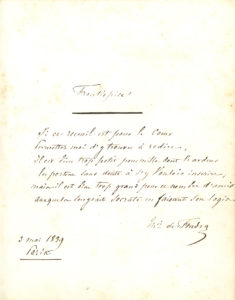 Frontispice
Si ce recueil est pour le Cœur
permettez moi d'y trouver à redire,
il est bien trop petit pour mille dont l'ardeur
la portera sans doute à s'y vouloir inscrire,
mais il est bien trop grand pour ce nombre d'amis
auquel songeait Socrate en faisant son logis
3 mai 1839
Paris